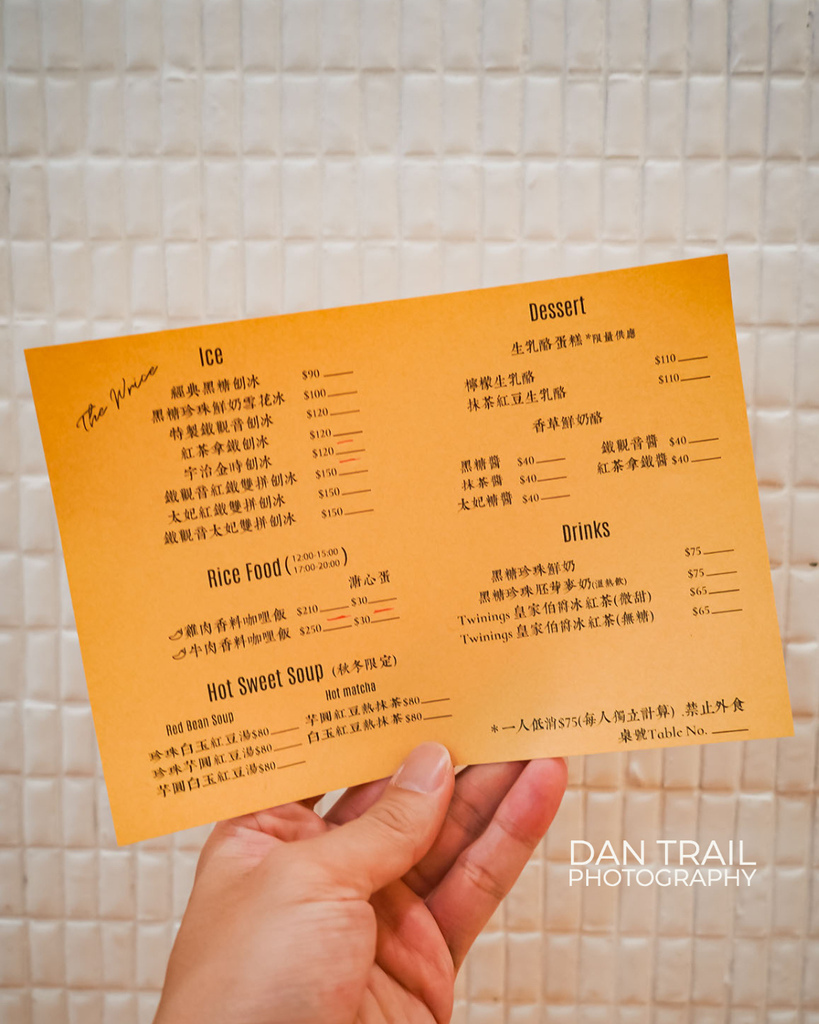 The Wrice
Ice
經典黑糖刨冰 $90
黑糖珍珠鮮奶雪花冰 $100
特製鐵觀音刨冰 $120
紅茶拿鐵刨冰 $120
宇治金時刨冰 $120
鐵觀音紅鐵雙拼刨冰 $150
太妃紅鐵雙拼刨冰 $150
鐵觀音太妃雙拼刨冰 $150
Rice Food (12:00-15:00
17:00-20:00)
溏心蛋
雞肉香料咖哩飯 $210 $30
牛肉香料咖哩飯 $250 $30
Hot Sweet Soup (秋冬限定)
Red Bean Soup
珍珠白玉紅豆湯$80
珍珠芋圓紅豆湯$80
芋圓白玉紅豆湯$80
Hot matcha
芋圓紅豆熱抹茶$80
白玉紅豆熱抹茶$80
Dessert
生乳酪蛋糕*限量供應
檸檬生乳酪 $110
抹茶紅豆生乳酪 $110
香草鮮奶酪
黑糖醬 $40 鐵觀音醬 $40
抹茶醬 $40 紅茶拿鐵醬 $40
太妃糖醬 $40
Drinks
黑糖珍珠鮮奶 $75
黑糖珍珠胚芽麥奶(溫熱飲) $75
Twinings 皇家伯爵冰紅茶(微甜) $65
Twinings 皇家伯爵冰紅茶(無糖) $65
*一人低消$75(每人獨立計算) .禁止外食
桌號Table No.
DAN TRAIL
PHOTOGRAPHY